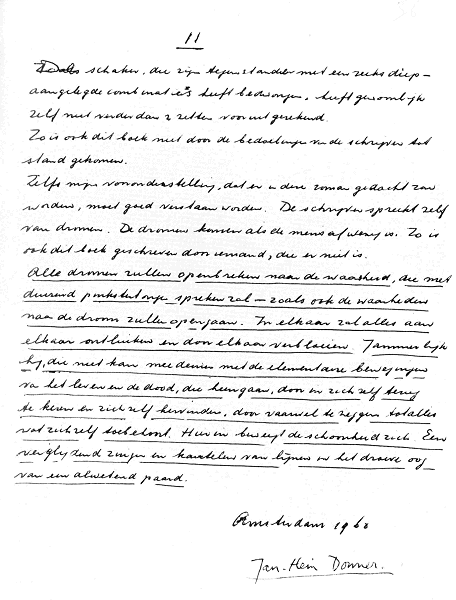 11
schaker, die zijn tegenstander met een reeks diep-
aangelegde combinaties heeft bedwongen, heeft gewoonlijk
zelf niet verder dan 2 zetten vooruit gerekend.
Zo is ook dit boek niet door de bedoelingen van de schrijver tot
stand gekomen.
Zelfs mijn vooronderstelling, dat er in deze roman gedacht zou
worden, moet goed verstaan worden. De schrijver spreekt zelf
van dromen. De dromen komen als de mens afwezig is. Zo is
ook dit boek geschreven door iemand, die er niet is.
Alle dromen zullen openbreken naar de waarheid, die met
duizend spreken zal – zoals ook de waarheden
naar de droom zullen opengaan. In elkaar zal alles aan
elkaar ontluiken en door elkaar verbloeien. Jammerlijk
hij, die niet kan meedeinen met de elementaire bewegingen
van het leven en de dood, die heengaan, door in zichzelf terug
te keren en zichzelf hervinden, door vaarwel te zeggen tot alles
wat zichzelf toebehoort. Hierin beweegt de schoonheid zich. Een
verglijdend zingen en kantelen van lijnen in het droeve oog
van een alwetend paard.
Amsterdam 1960
Jan-Hein Donner.